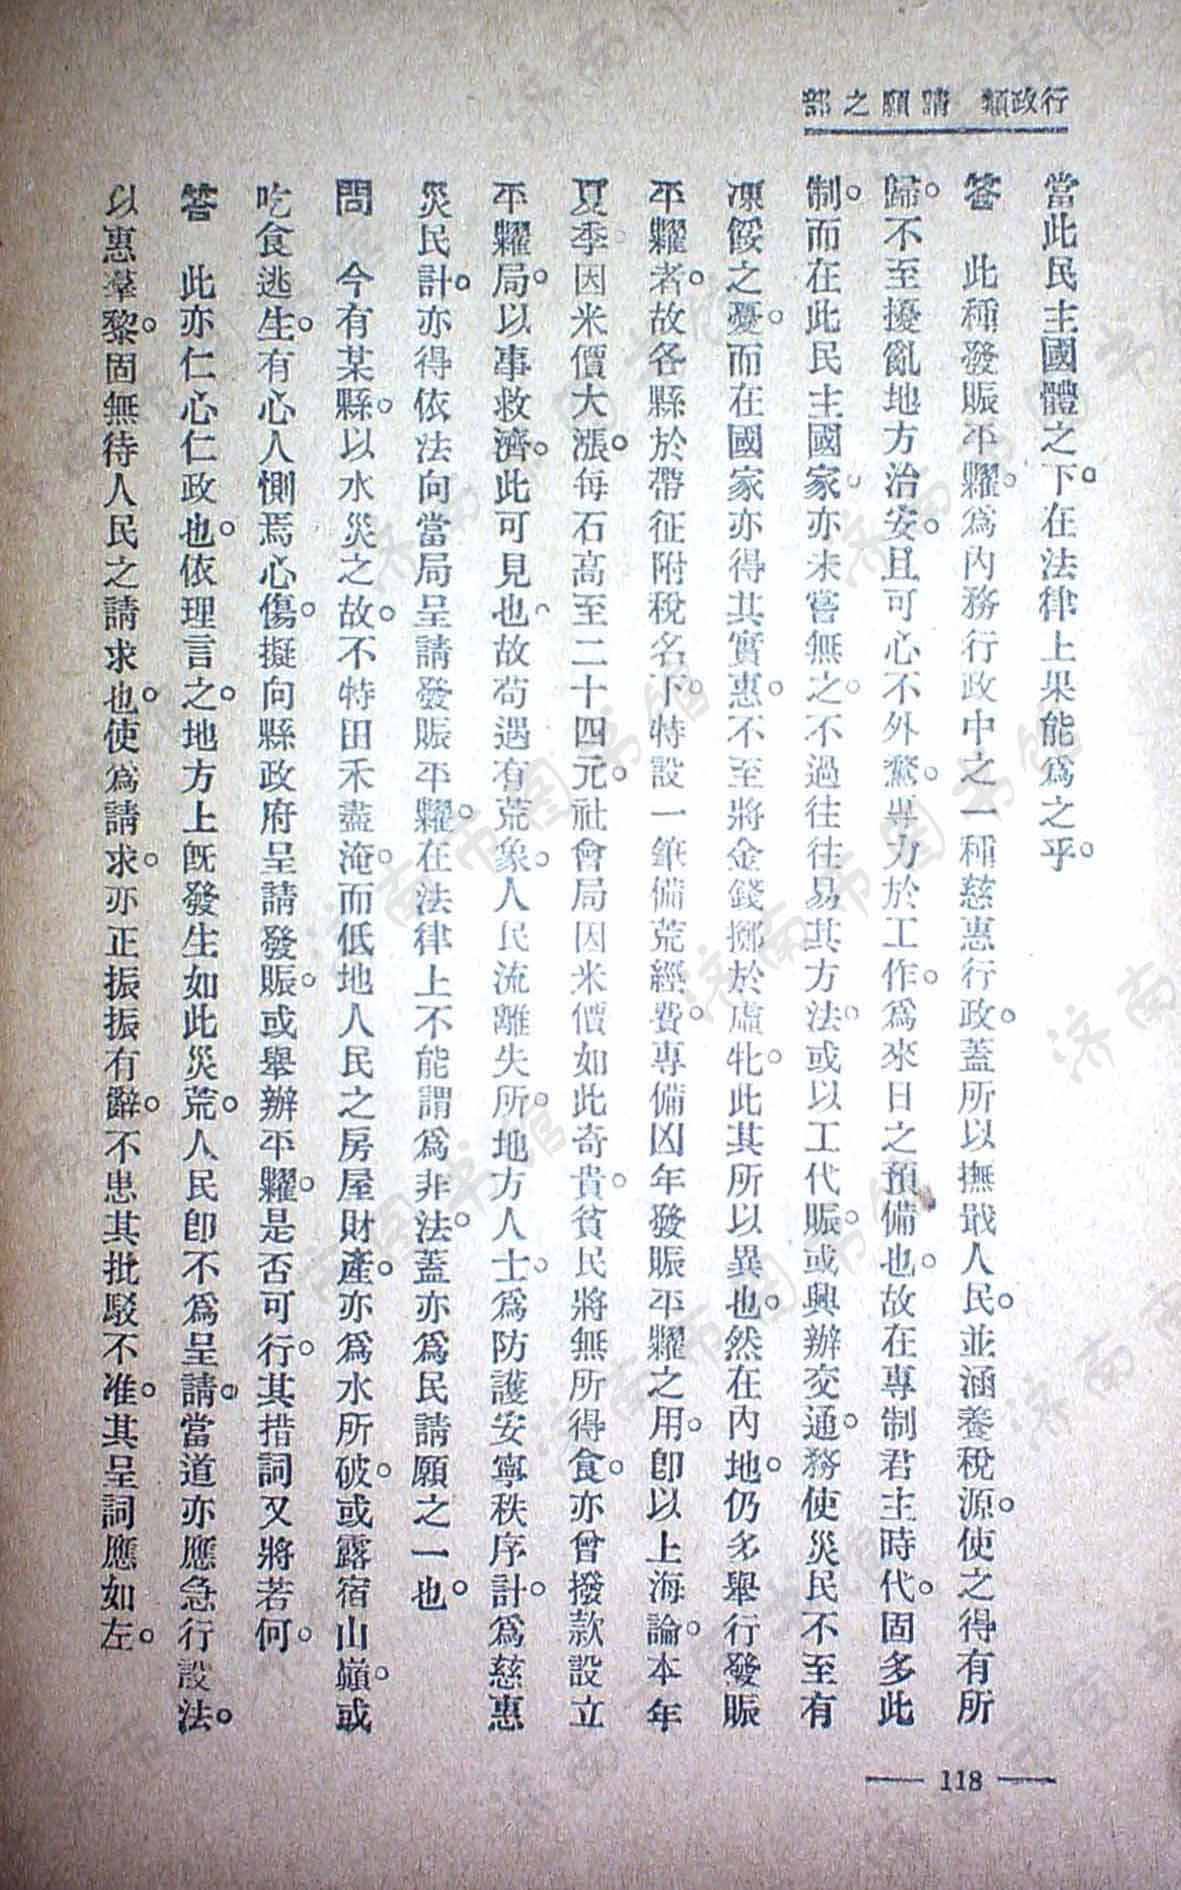 行政類　請願之部
當此民主國體之下。在法律上果能爲之乎。
答　此種發賑平糶。爲內務行政中之一種慈惠行政。蓋所以撫戢人民。並涵養稅源。使之得有所
歸。不至擾亂地方治安。且可心不外騖。畢力於工作。爲來日之預備也。故在專制君主時代。固多此
制。而在此民主國家。亦未嘗無之。不過往往易其方法。或以工代賑。或興辦交通。務使災民不至有
凍餒之憂。而在國家亦得其實惠。不至將金錢擲於虛牝。此其所以異也。然在內地。仍多舉行發賑
平糶者。故各縣於帶征附稅名下。特設一筆備荒經費。專備凶年發賑平糶之用。卽以上海論。本年
夏季。因米價大漲。每石高至二十四元。社會局因米價如此奇貴。貧民將無所得食。亦曾撥款設立
平糶局。以事救濟。此可見也。故苟遇有荒象。人民流離失所。地方人士。爲防護安寧秩序計。爲慈惠
災民計。亦得依法向當局呈請發賑平糶。在法律上不能謂爲非法。蓋亦爲民請願之一也。
問　今有某縣。以水災之故。不特田禾盡淹。而低地人民之房屋財產。亦爲水所破。或露宿山巔。或
吃食逃生。有心人惻焉心傷。擬向縣政府呈請發賑。或舉辦平糶。是否可行。其措詞又將若何。
答　此亦仁心仁政也。依理言之。地方上旣發生如此災荒。人民卽不爲呈請。當道亦應急行設法。
以惠羣黎。固無待人民之請求也。使爲請求。亦正振振有辭。不患其批駁不准。其呈詞應如左。
— 118 —
濟南市图书馆